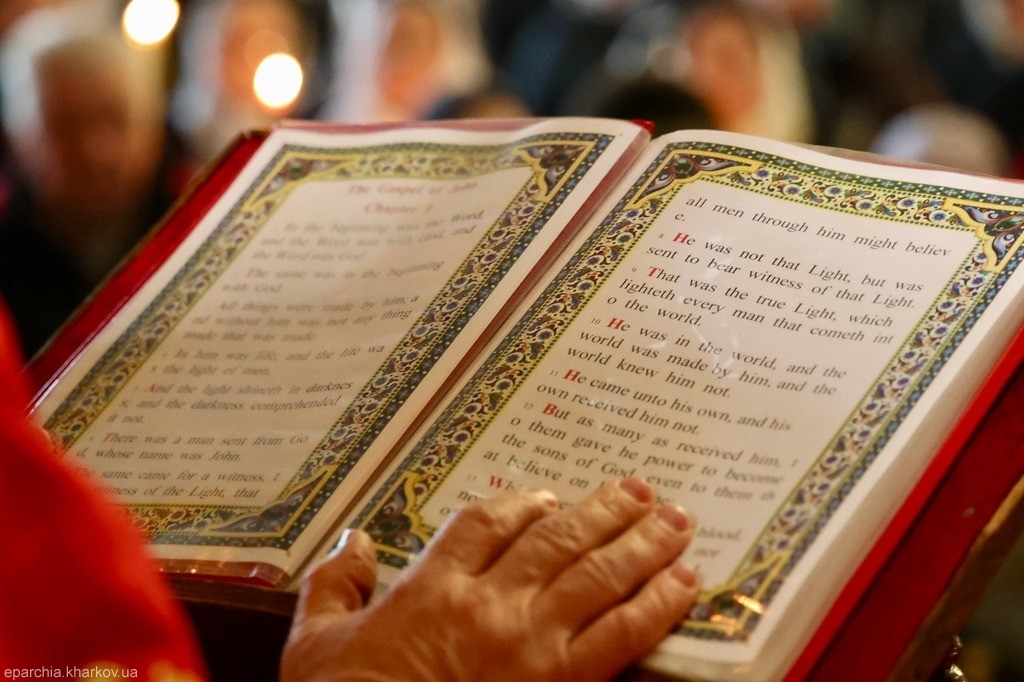 The Gospel of John
Chapter 1
In the beginning was the Word,
and the Word was with God, and
the Word was God.
The same was in the beginning
with God.
All things were made by him, a
nd without him was not any thing
made that was made.
In him was life, and the life wa
s the light of men.
And the light shineth in darknes
s; and the darkness comprehended
it not.
There was a man sent from Go
d, whose name was John.
same came for a witness, t
witness of the Light, that
all men through him might believ
e.
8 He was not that Light, but was
sent to bear witness of that Light.
9 That was the true Light, which
lighteth every man that cometh int
o the world.
10 He was in the world, and the
world was made by him, and the
world knew him not.
11 He came unto his own, and his
own received him not.
12 But as many as received him, t
o them gave he power to become
the sons of God, even to them th
at believe on
13
blood,
nor
eparchia.kharkov.ua